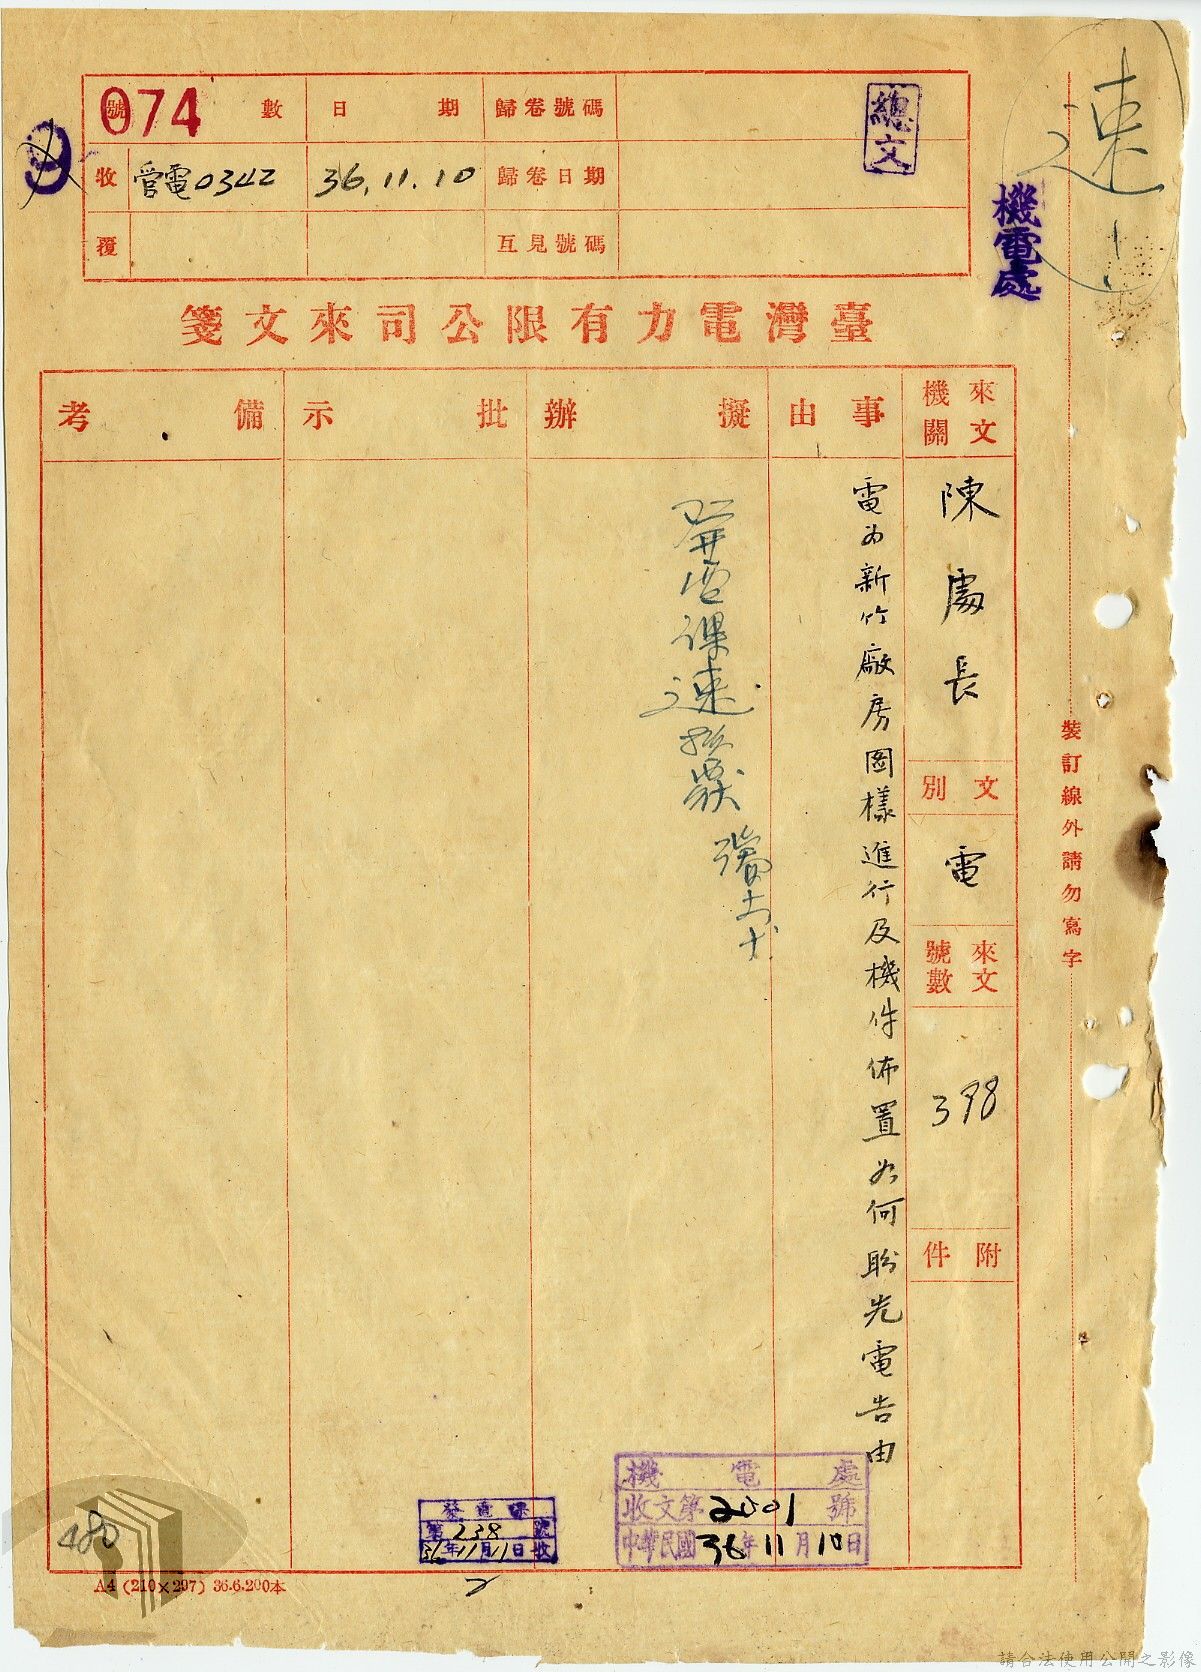 速
號數 日期 歸卷號碼
074
總文
9
收 管電0342 36.11.10 歸卷日期
覆 互見號碼
機電處
臺灣電力有限公司來文箋
來文機關
陳處長
文別
電
來文號數
398
附件
事由
電為新竹廠房圖樣進行及機件佈置如何盼先電告由
擬辦
發電課速擬覆
批示
備考
裝訂線外請勿寫字
機電處
收文第2001號
中華民國36年11月10日
發電課
第238號
36年11月11日收
480
A4 (210×297) 36.6.200本
請合法使用公開之影像